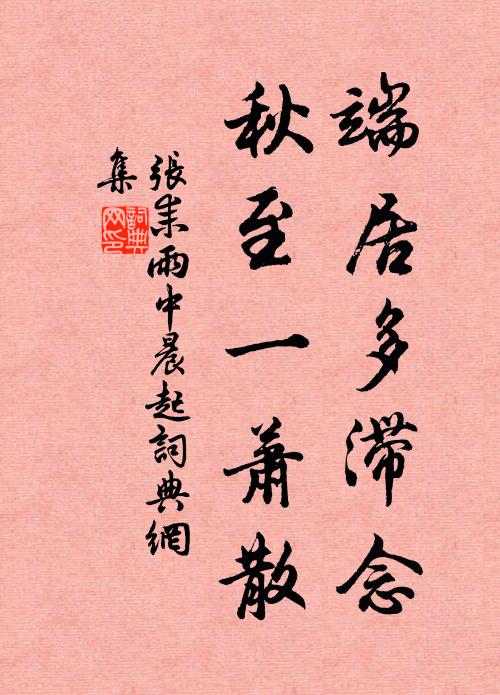 端居多滯念
秋至一蕭散
張耒雨中晨起詞典網
集
詞典
网印